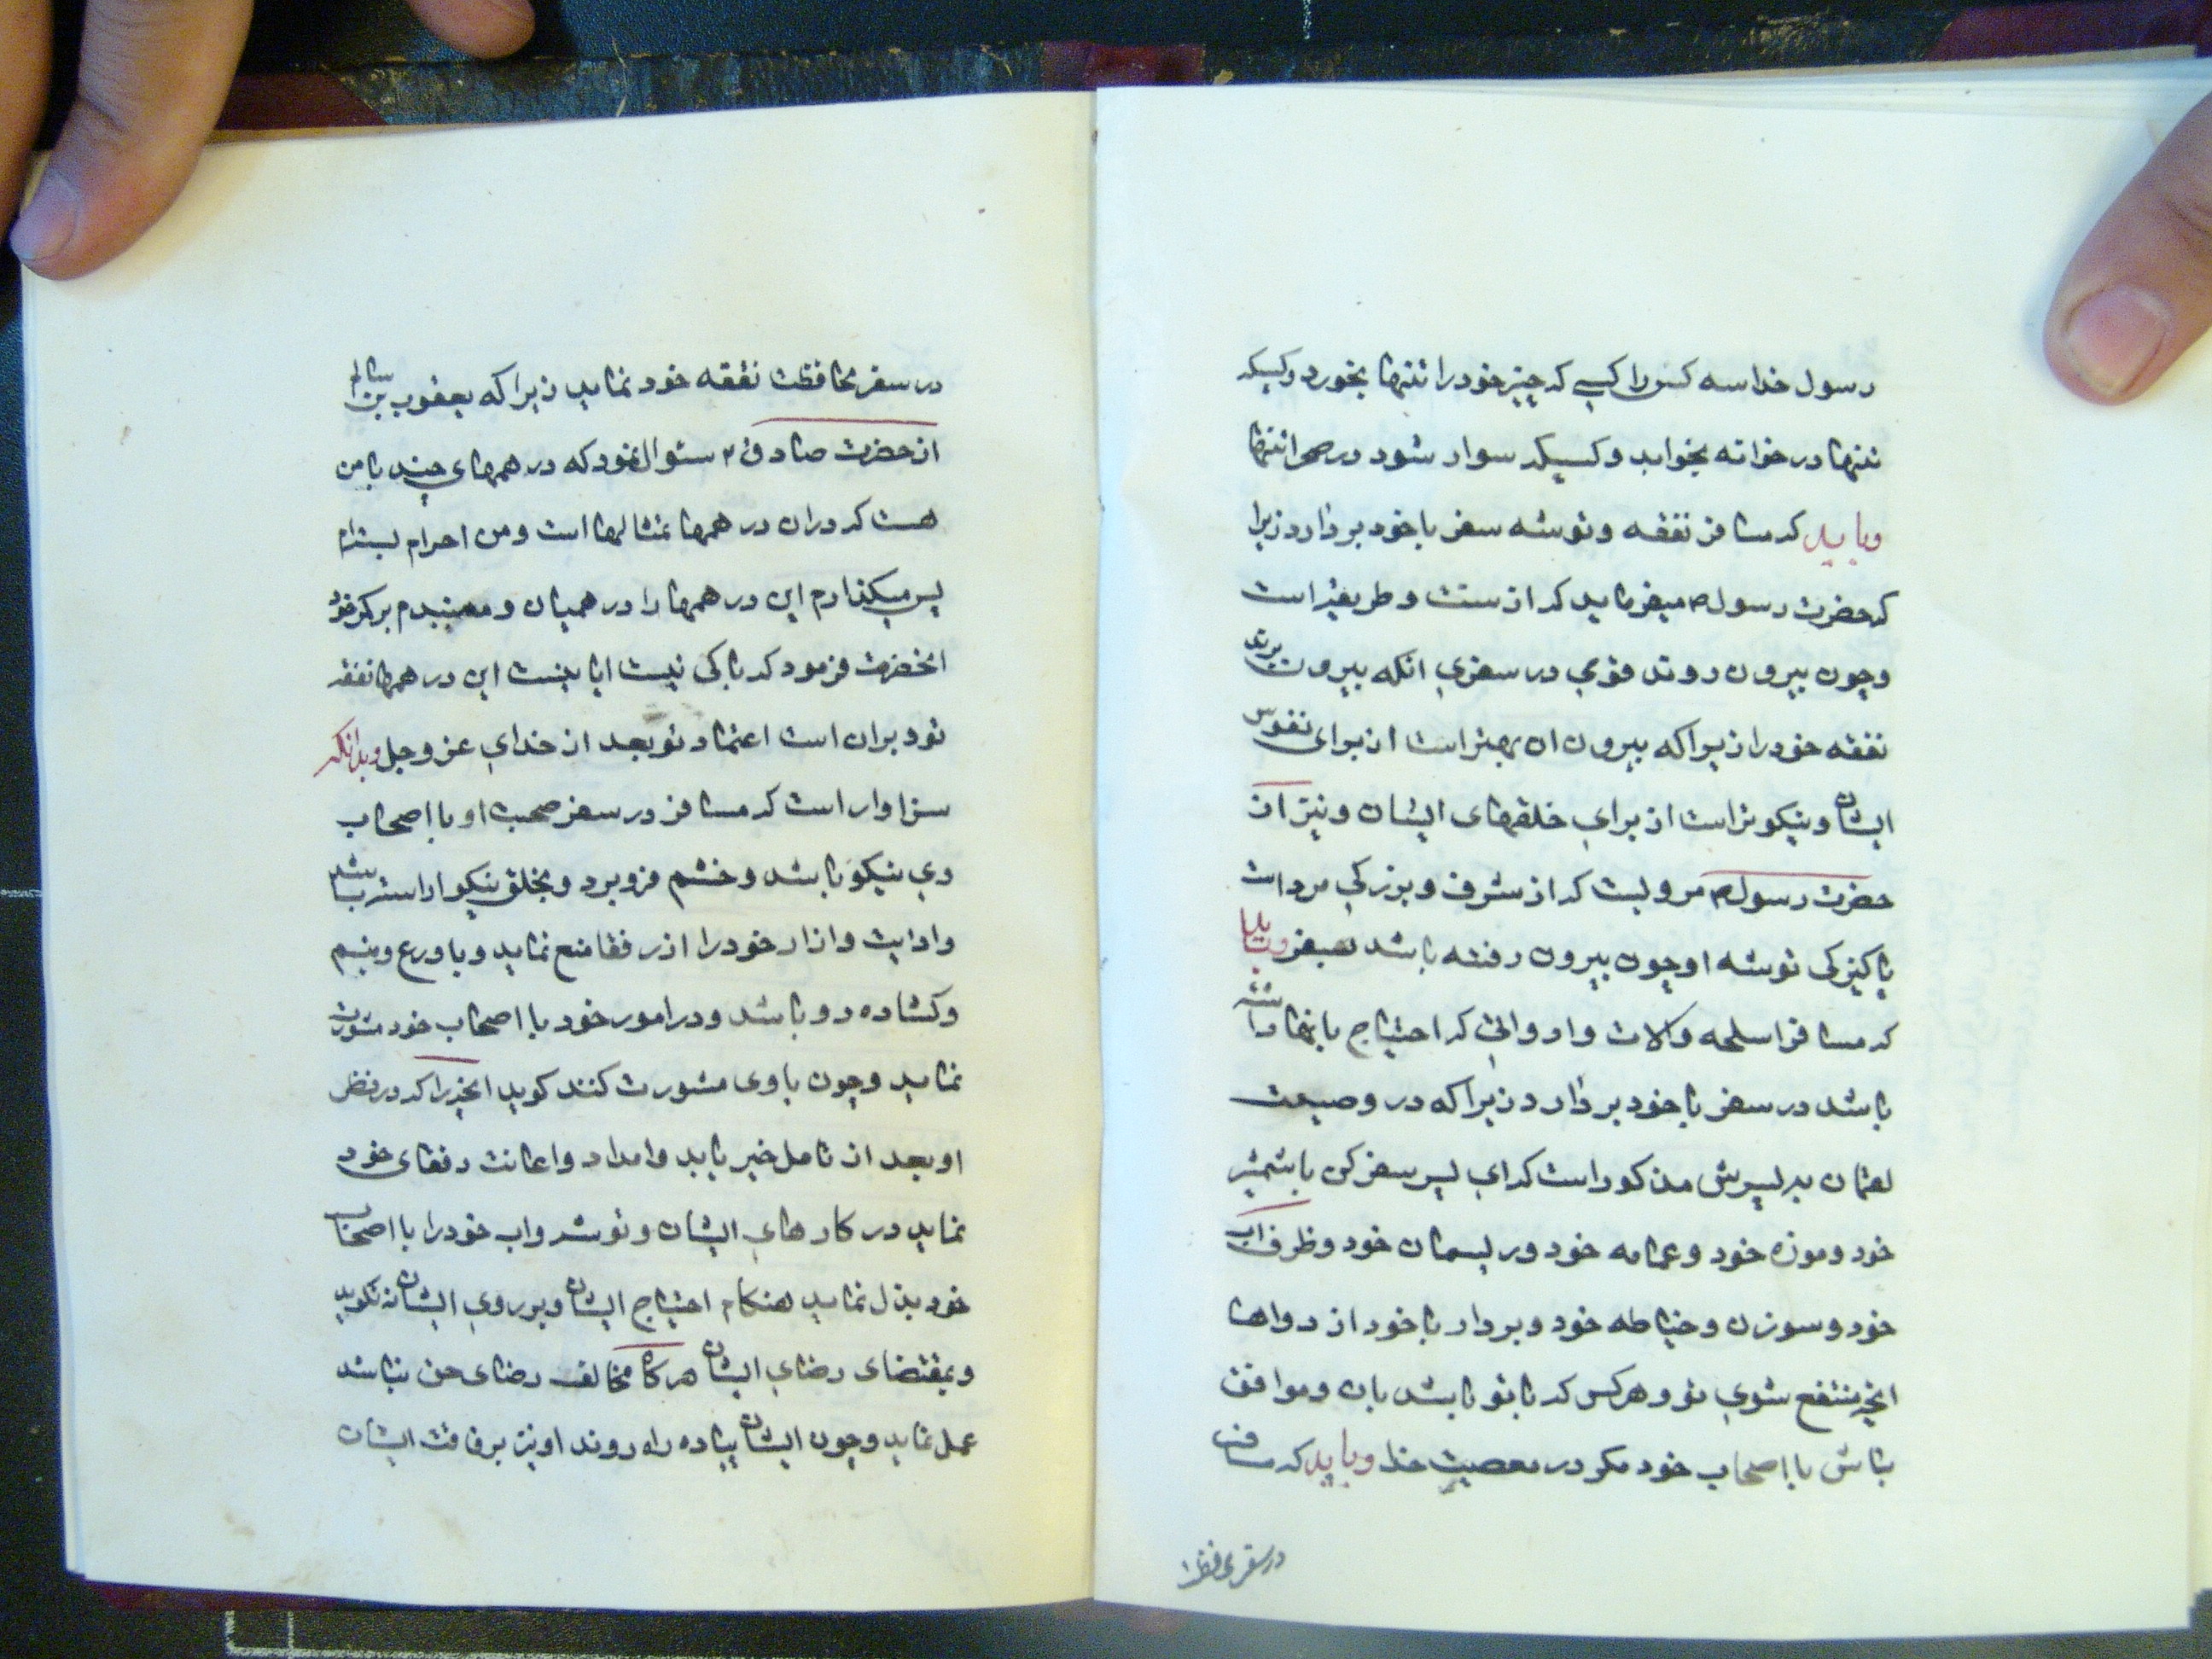 رسول خدا سه کس را کسی که چیز خود را تنها بخورد و کسیکه
تنها در خوانه بخوابد و کسیکه سوار شود در صحرا تنها
و باید که مسافر نفقه و توشه سفر با خود بردارد زیرا
که حضرت رسول ص میفرماید که از سنت و طریقه است
و چون بیرون روند قومی در سفری انکه بیرون برند
نفقه خود را زیرا که بیرون ان بهتر است از برای نفوس
ایشان و نیکوتر است از برای خلقهای ایشان و نیز از
حضرت رسول ص مرویست که از شرف و بزرکی مرد است
پاکیزکی توشه او چون بیرون رفته باشد بسفر و باید
که مسافر اسلحه و الات و ادواتی که احتیاج بانها داشته
باشد در سفر با خود بردارد زیرا که در وصیت
لقمان به پسرش مذکور است که ای پسر سفر کن با شمشیر
خود و موزه خود و عمامه خود و ریسمان خود و ظرف اب
خود و سوزن و خیاطه خود و بردار با خود از دواها
انچه منتفع شوی تو و هر کس که با تو باشد بان و موافق
باش با اصحاب خود مکر در معصیت خدا و باید که مسافر
در سفر محافظت
در سفر محافظت نفقه خود نماید زیرا که یعقوب بن سالم
از حضرت صادق ع سئوال نمود که درهمهای چند با من
هست که در ان درهمها تمثالها است و من احرام بسته‌ام
پس میکذارم این درهمها را در همیان و میبندم بر کمر خود
انحضرت فرمود که باکی نیست ایا نیست این درهمها نفقه
تو و بران است اعتماد تو بعد از خدای عز و جل و بدانکه
سزاوار است که مسافر در سفر صحبت او با اصحاب
وی نیکو باشد و خشم فرو برد و بخلق نیکو اراسته باشد
و اذیت و ازار خود را از رفقا منع نماید و با ورع و تبسم
و کشاده رو باشد و در امور خود با اصحاب خود مشورت
نماید و چون با وی مشورت کنند کوید انچیز را که در نظر
او بعد از تامل خیر باید و امداد و اعانت رفقای خود
نماید در کارهای ایشان و توشه و اب خود را با اصحاب
خود بذل نماید هنکام احتیاج ایشان و بر روی ایشان نه نکوید
و بمقتضای رضای ایشان هر کاه مخالف رضای حق نباشد
عمل نماید و چون ایشان پیاده راه روند او نیز برفاقت ایشان